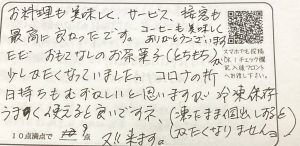 お料理も美味しく、サービス、接客も
最高に良かったです。コーヒーも美味しく
ありがとうございます
ただ おもてなしのお茶菓子(とちもち)が
少しかたくなっていました。コロナの折
日持ちもむずかしいと思いますが 冷凍保存
うまく使えると良いですネ、(凍ったまま個出しすると
かたくなりませんョ)
10点満点で 9 点 又!!来ます。
スマホでも投稿
OK!チェック欄
記入後フロント
へお渡し下さい。